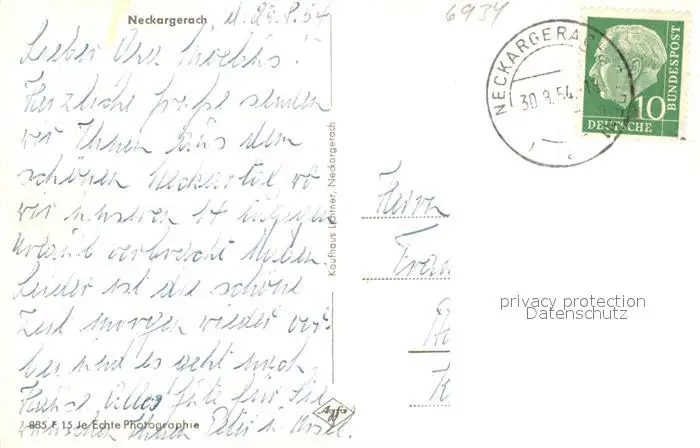 Neckargerach, d. 29.8.54
6934
Lieber Herr
Herzliche Grüße senden
wir Ihnen aus dem
schönen Neckartal wo
wir unseren 14 tägigen
Urlaub verbracht haben.
Leider ist die schöne
Zeit morgen wieder vor-
bei und es geht nach
Hause. Alles Gute für Sie
wünschen Ihnen Peter u. Ursel.
885 F 15 Je Echte Photographie
Agfa
Kaufhaus Lintner, Neckargerach
NECKARGERACH
30.8.54
10
DEUTSCHE
BUNDESPOST
Herrn
privacy protection
Datenschutz